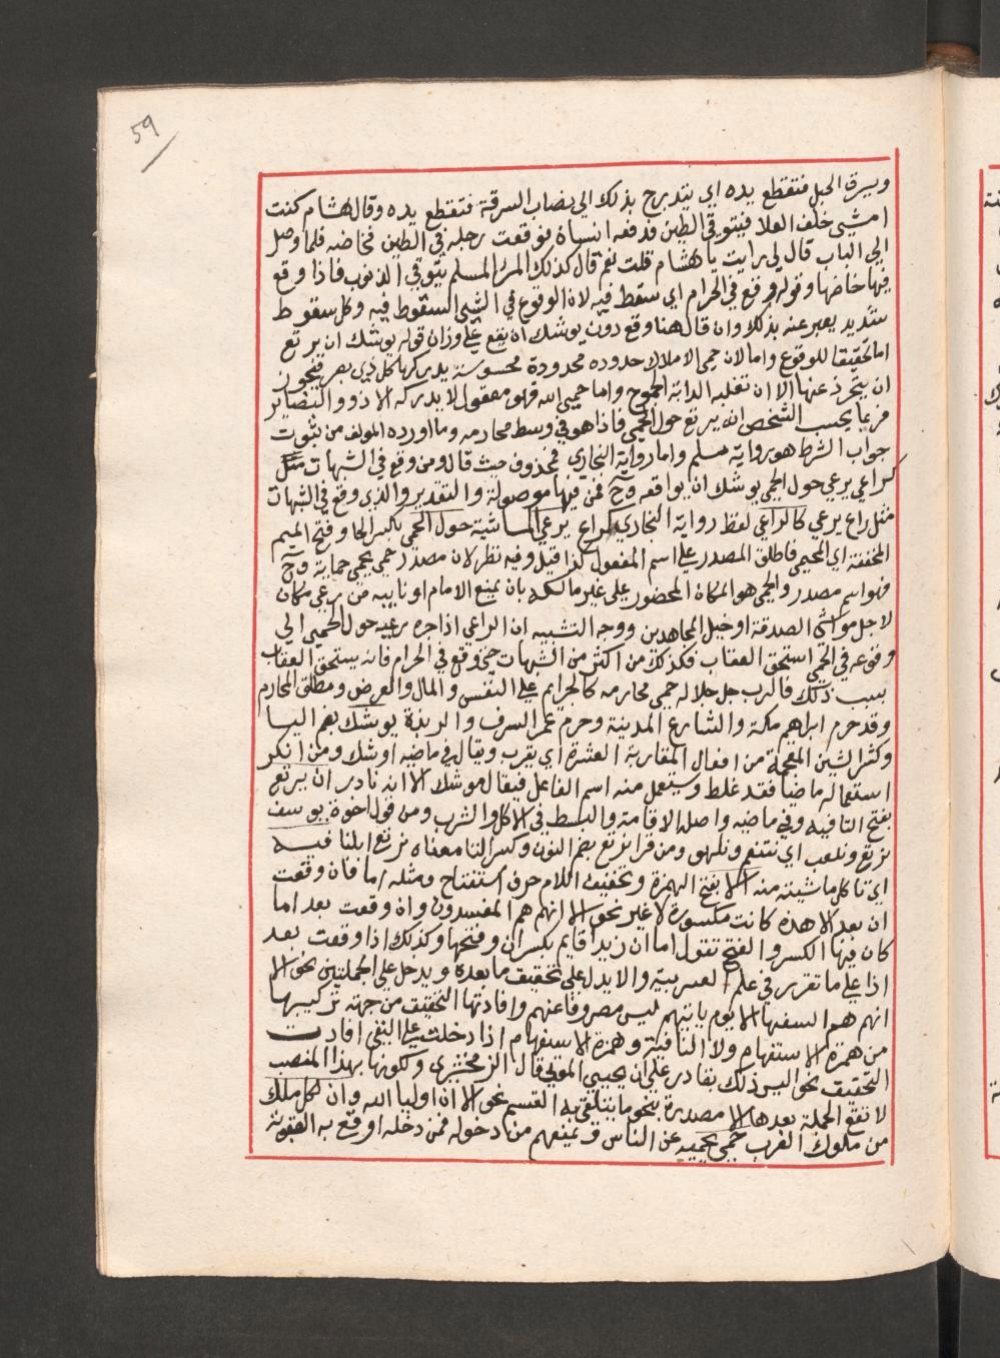 59
ويسرق الحبل فتقطع يده اي يتدرج بذلك الي نصاب السرقة فتقطع يده وقال هشام كنت
امشي خلف العلا فيتوقي الطين فدفعه انسان فوقعت رجله في الطين فخاضه فلما وصل
الي الباب قال لي رايت يا هشام قلت نعم قال كذلك المرؤ المسلم يتوقي الذنوب فاذا وقع
فيها خاضها وقوله وقع في الحرام اي سقط فيه لان الوقوع في الشي السقوط فيه وكل سقوط
شديد يعبر عنه بذلك وان قال هنا وقع دون يوشك ان يقع علي وزان قوله يوشك ان يرتع
اما تحقيقا للوقوع واما لان حمي الاملاك حدوده محدودة محسوسة يدركها كل ذي بصر فيجوز
ان يتحرز عنها الا ان تغلبه الدابة الجموح واما حمي الله فهو معقول لا يدركه الا ذوو البصاير
فربما يحسب الشخص انه يرتع حول الحمي فاذا هو في وسط محارمه وما اورده المولف من ثبوت
جواب الشرط هو رواية مسلم واما رواية البخاري فمحذوف حيث قال ومن وقع في الشبهات مثل
كراعي يرعي حول الحمي يوشك ان يواقعه وح فمن فيها موصولة والتقدير والذي وقع في الشبهات
مثل راع يرعي كالراعي لفظ رواية البخاري كراع يرعي الماشية حول الحمي بكسر الحا وفتح الميم
المخففة اي المحمي فاطلق المصدر علي اسم المفعول كذا قيل وفيه نظر لان مصدر حمي يحمي حماية وح
فهو اسم مصدر والحمي هو المكان المحضور علي غير مالكه بان يمنع الامام او نايبه من يرعي مكان
لاجل مواشي الصدقة او خيل المجاهدين ووجه التشبيه ان الراعي اذا جره رعيه حول الحمي الي
وقوعه في الحمي استحق العقاب فكذلك من اكثر من الشبهات حتي وقع في الحرام فانه يستحق العقاب
بسبب ذلك فالرب جل جلاله حمي محارمه كالجرايم علي النفس والمال والعرض ومطلق المحارم
وقد حرم ابراهيم مكة والشارع المدينة وحرم عمر السرف والربذة يوشك بضم اليا
وكسر الشين المعجمة من افعال المقاربة العشرة اي يقرب ويقال في ماضيه اوشك ومن انكر
استعماله ماضيا فقد غلط ويستعمل منه اسم الفاعل فيقال موشك الا انه نادر ان يرتع
بفتح التا فيه وفي ماضيه واصله الاقامة والبسط في الاكل والشرب ومن قول اخوة يوسف
نرتع ونلعب اي نتنعم ونلهو ومن قرا نرتع بضم النون وكسر التا معناه نرتع ابلنا فيه
اي تاكل ماشيته منه الا بفتح الهمزة وتخفيف اللام حرف استفتاح ومثله اما فان وقعت
ان بعد الا هذه كانت مكسورة لا غير نحو الا انهم هم المفسدون وان وقعت بعد اما
كان فيها الكسر والفتح تقول اما ان زيدا قايم بكسر ان وفتحها وكذلك اذا وقعت بعد
اذا علي ما تقرر في علم العربية والا يدل علي تحقيق ما بعده ويدخل علي الجملتين نحو الا
انهم هم السفها الا يوم ياتيهم ليس مصروفا عنهم وافادتها التحقيق من جهة تركيبها
من همزة الاستفهام ولا النافية وهمزة الاستفهام اذا دخلت علي النفي افادت
التحقيق نحو اليس ذلك بقادر علي ان يحيي الموتي قال الزمخشري ولكونها بهذا المنصب
لا تقع الجملة بعدها الا مصدرة بنحو ما يتلقي به القسم نحو الا ان اوليا الله وان لكل ملك
من ملوك العرب حمي يحميه عن الناس ويمنعهم من دخوله فمن دخله اوقع به العقوبة